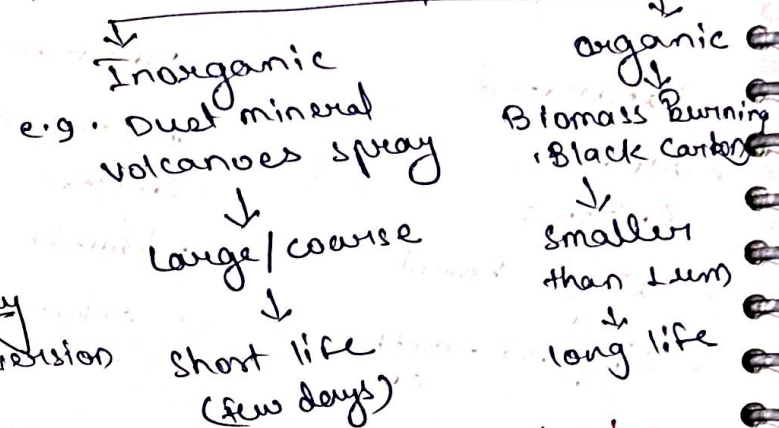 Inorganic
e.g. Dust mineral
volcanoes spray
↓
Large/coarse
↓
Short life
(few days)
organic
↓
Biomass Burning
, Black Carbon
↓
smaller
than 1um
↓
long life